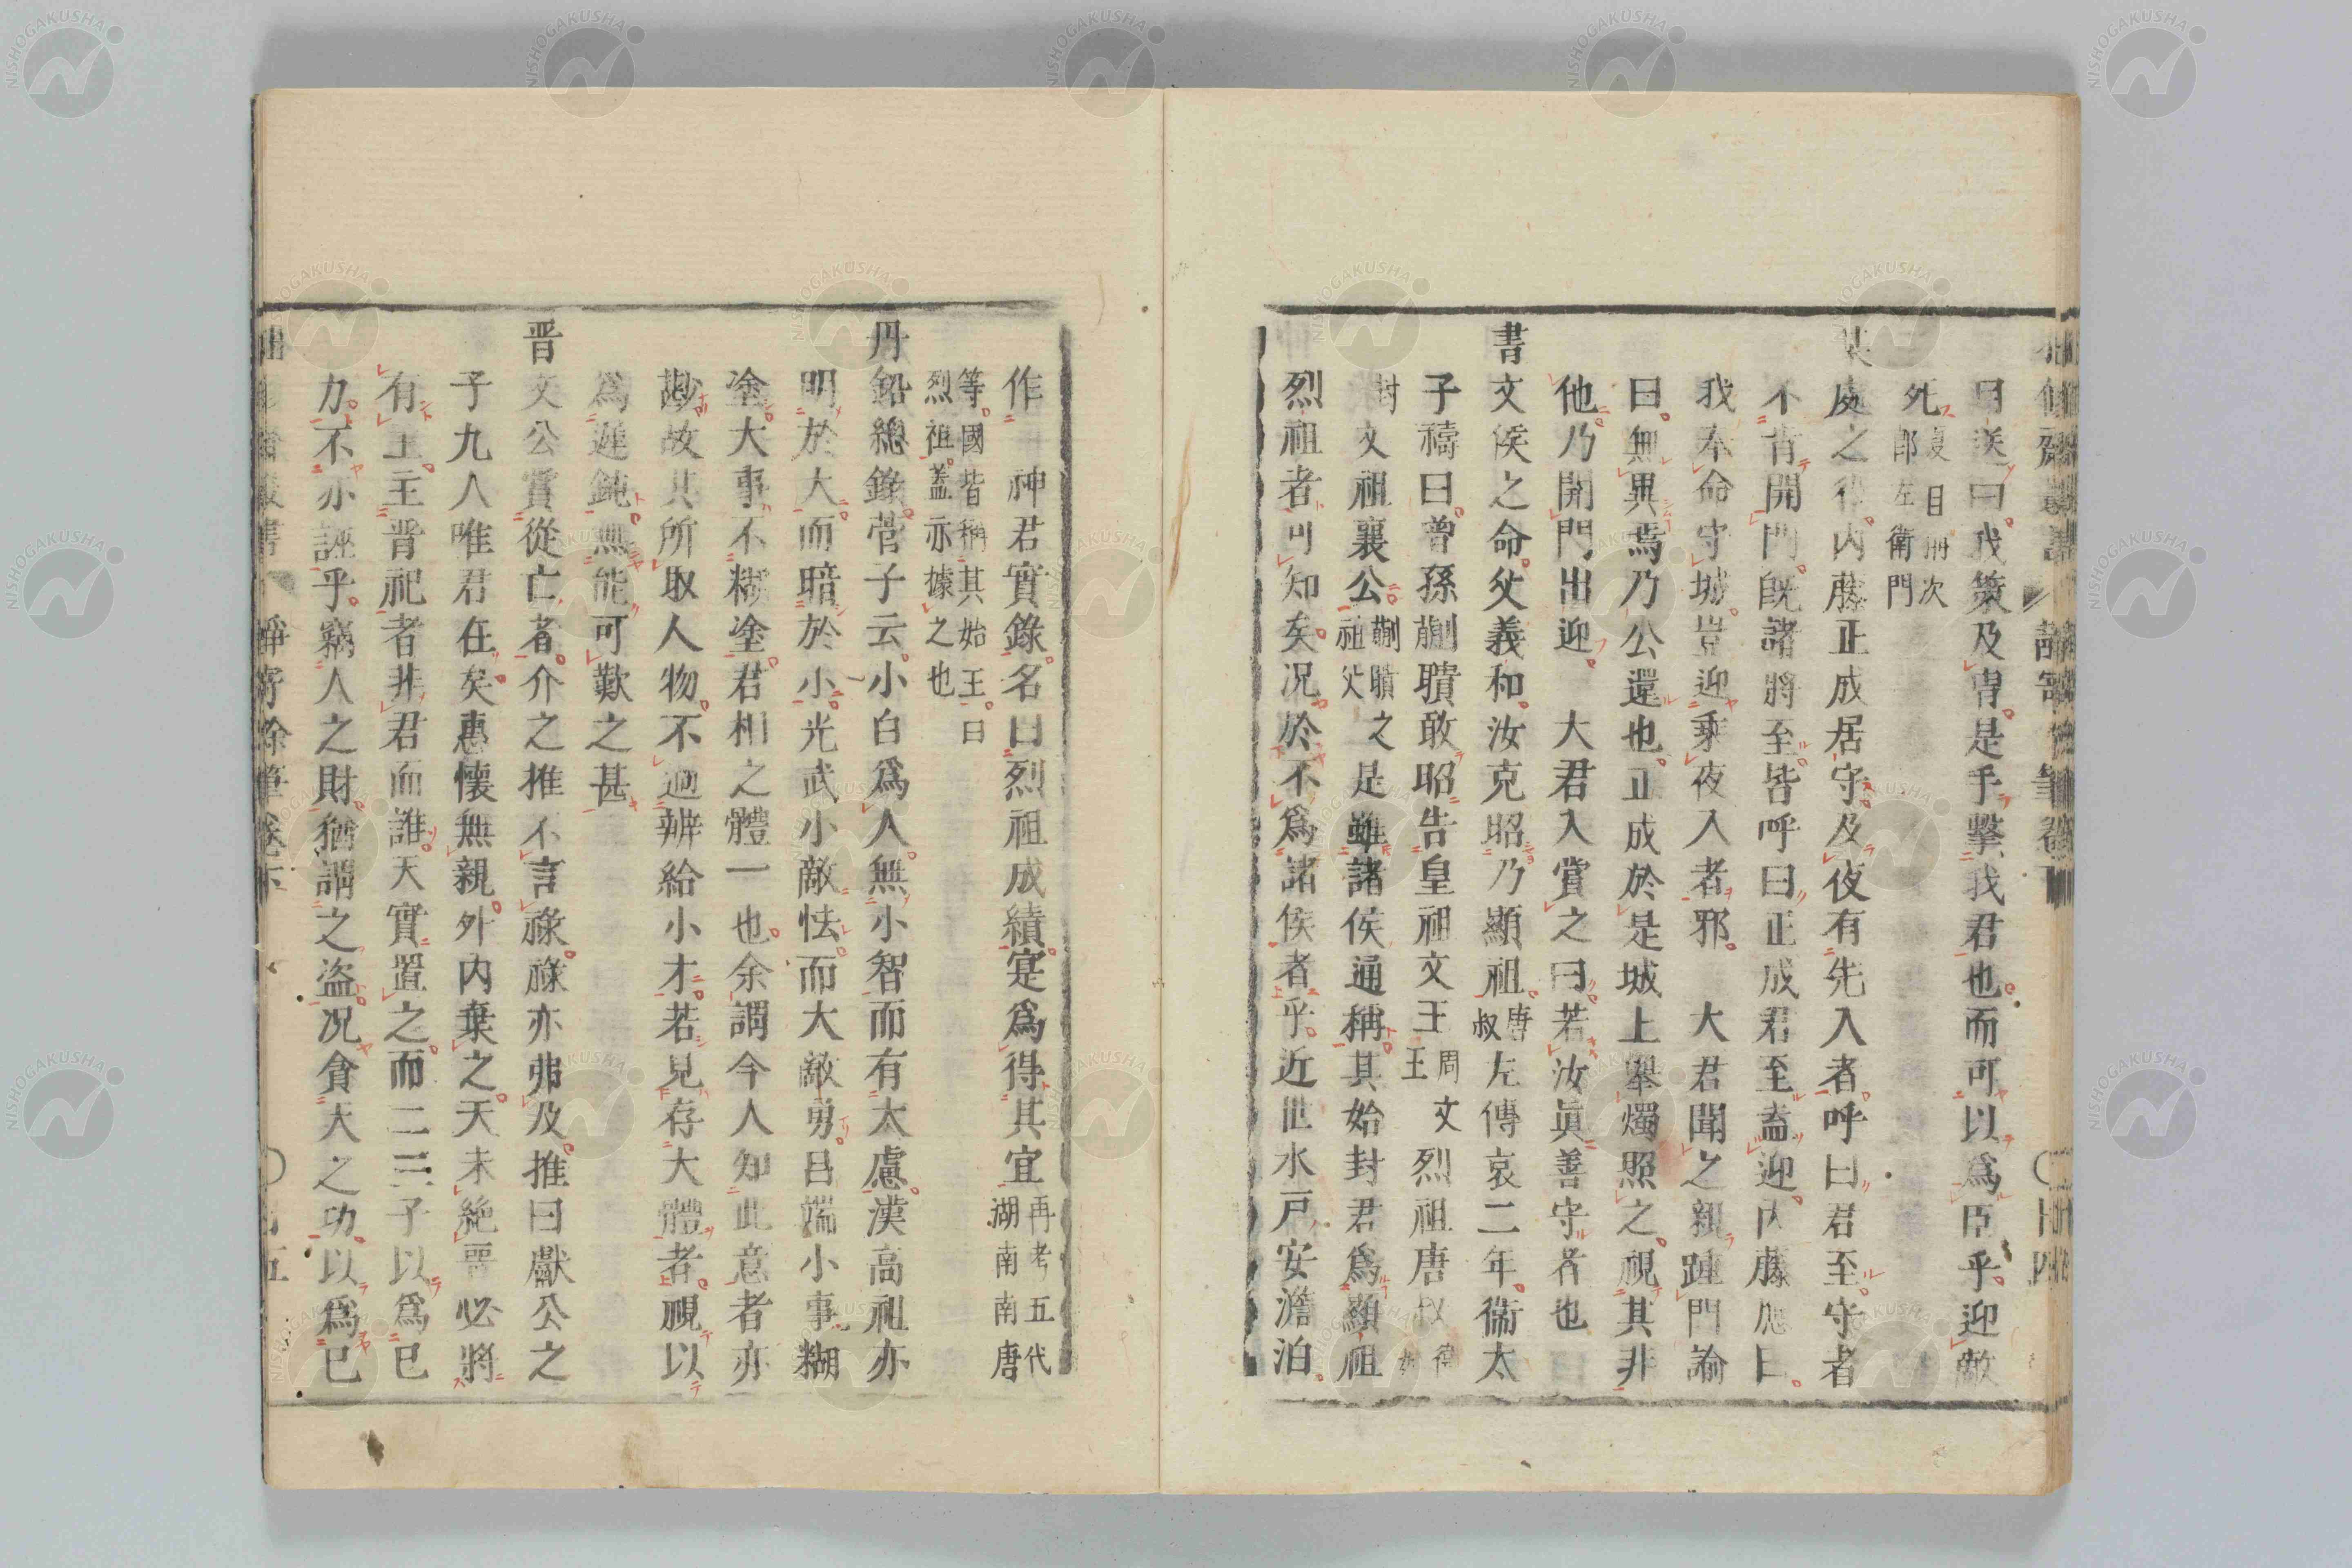 曰送曰我槩及冑是手擊我君也而可以爲臣乎迎敵
死夏目冊次
郎左衛門
某處之役内藤正成居守及夜有先入者呼曰君至守者
不肯開門旣諸將至皆呼曰正成君至盍迎内藤應曰
我奉命守城豈迎乗夜入者邪　大君聞之親踵門諭
曰無異焉乃公還也正成於是城上舉燭照之視其非
他乃開門出迎　大君入賞之曰若汝眞善守者也
書文侯之命父義和汝克昭乃顯祖唐叔左傳哀二年衞太
子禱曰曾孫蒯聵敢昭告皇祖文王周文王烈祖唐叔
封文祖襄公蒯聵之祖父是雖諸侯通稱其始封君爲顯祖
烈祖者可知矣况於不爲諸侯者乎近世水戸安澹泊
作　神君實錄名曰烈祖成績寔爲得其宜再考五代湖南南唐
等國皆稱其始王曰
烈祖蓋亦據之也
丹鉛總錄菅子云小白爲人無小智而有太慮漢高祖亦
明於大而暗於小光武小敵怯而大敵勇呂端小事糊
塗大事不糊塗君相之體一也余謂今人知此意者亦
尠故其所取人物不過辨給小才若見存大體者視以
爲遲鈍無能可歎之甚
晋文公賞從亡者介之推不言祿祿亦弗及推曰獻公之
子九人唯君在矣惠懷無親外内棄之天未絶晋必將
有主主晋祀者非君而誰天實置之而二三子以爲已
力不亦誣乎竊人之財猶謂之盗况貪天之功以爲已